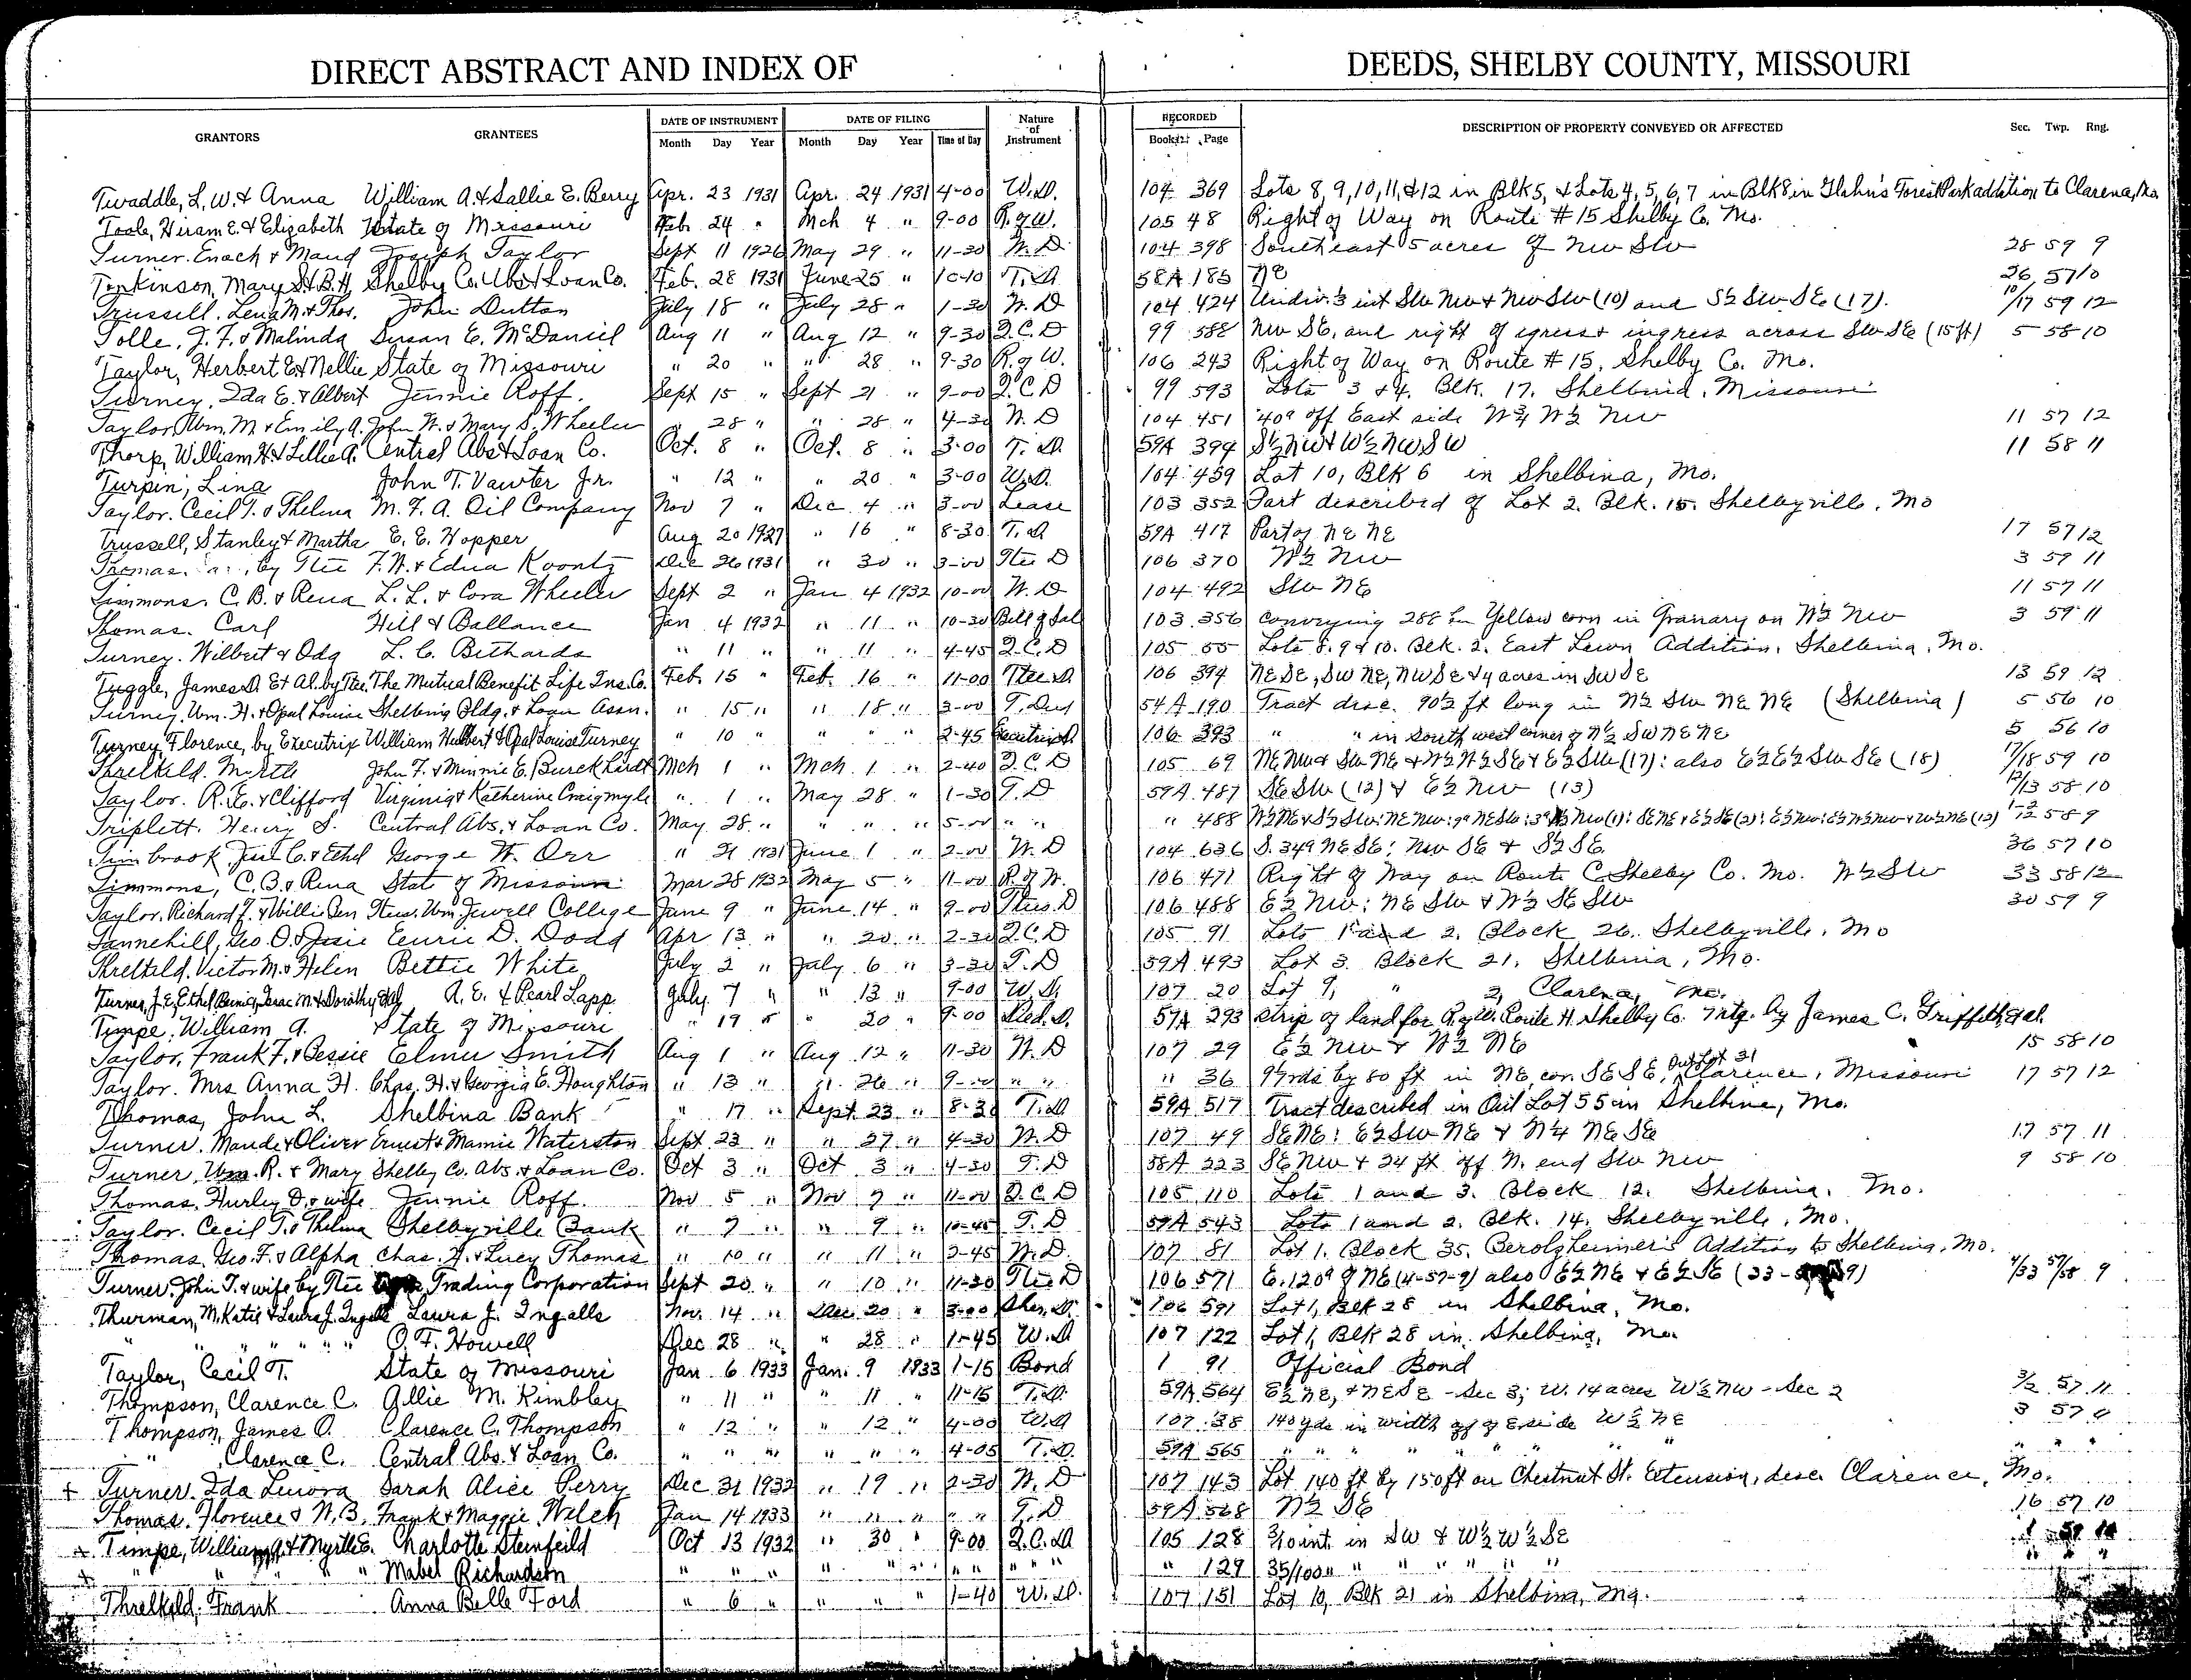 DIRECT ABSTRACT AND INDEX OF DEEDS, SHELBY COUNTY, MISSOURI
GRANTORS GRANTEES DATE OF INSTRUMENT Month Day Year DATE OF FILING Month Day Year Time of Day Nature of Instrument RECORDED Book Page DESCRIPTION OF PROPERTY CONVEYED OR AFFECTED Sec. Twp. Rng.
Twaddle, L. W. & Anna William A. & Sallie E. Berry Apr. 23 1931 Apr. 24 1931 4-00 W.D. 104 369 Lots 8, 9, 10, 11, & 12 in Blk 5, & Lots 4, 5, 6, 7 in Blk 8 in Forest Park addition to Clarena, Mo.
Toole, Hiram E. & Elizabeth State of Missouri Feb. 24 " Mch 4 " 9-00 R. of W. 105 48 Right of Way on Route #15 Shelby Co. Mo.
Turner. Enoch & Maud Joseph Taylor Sept 11 1926 May 29 " 11-30 W. D. 104 398 Southeast 5 acres of NW SW 28 59 9
Tonkinson, Mary S. & B. H. Shelby Co. Abs & Loan Co. Feb. 28 1931 June 25 " 10-10 T. D. 58A 185 NE 26 57 10
Trussell. Lena M. & Thos. John Dutton July 18 " July 28 " 1-30 W. D 104 424 Undiv. 1/3 int SW NW & NW SW (10) and S½ SW SE (17). 10/17 59 12
Tolle, J. F. & Malinda Susan E. McDaniel Aug 11 " Aug 12 " 9-30 Q. C. D 99 588 NW SE, and right of egress & ingress across SW SE (15 ft) 5 58 10
Taylor, Herbert E & Nellie State of Missouri " 20 " " 28 " 9-30 R. of W. 106 243 Right of Way on Route #15, Shelby Co. Mo.
Turney, Ida E. & Albert Jennie Roff. Sept 15 " Sept 21 " 9-00 Q. C. D 99 593 Lots 3 & 4. Blk. 17. Shelbina, Missouri
Taylor, Wm. M & Emily A. John W. & Mary S. Wheeler " 28 " " 28 " 4-30 W. D 104 451 40a off East side W¾ W½ NW 11 57 12
Thorp, William H. & Lillie A. Central Abs & Loan Co. Oct. 8 " Oct. 8 " 3-00 T. D. 59A 394 S½ NW & W½ NW SW 11 58 11
Turpin, Lina John T. Vawter Jr. " 12 " " 20 " 3-00 W.D. 104 459 Lot 10, Blk 6 in Shelbina, Mo.
Taylor. Cecil T. & Thelma M. F. A. Oil Company Nov 7 " Dec 4 " 3-00 Lease 103 352 Part described of Lot 2. Blk. 15. Shelbyville, Mo
Trussell, Stanley & Martha E. E. Hopper Aug 20 1927 " 16 " 8-30 T. D 59A 417 Part of NE NE 17 57 12
Thomas. by Ttee F. W. & Edna Koontz Dec 26 1931 " 30 " 3-00 Ttee D 106 370 W½ NW 3 59 11
Timmons. C. B. & Rena L. L. & Cora Wheeler Sept 2 " Jan 4 1932 10-00 W. D 104 492 SW NE 11 57 11
Thomas. Carl Hill & Ballance Jan 4 1932 " 11 " 10-30 Bill of Sale 103 356 conveying 288 bu Yellow corn in Granary on W½ NW 3 59 11
Turney. Wilbert & Oda L. C. Bethards " 11 " " 11 " 4-45 Q. C. D 105 55 Lots 8. 9 & 10. Blk. 2. East Lawn Addition. Shelbina, Mo.
Tuggle, James D. Et Al. by Ttee. The Mutual Benefit Life Ins. Co. Feb. 15 " Feb. 16 " 11-00 Ttee D. 106 394 NE SE, SW NE, NW SE & 4 acres in SW SE 13 59 12
Turney. Wm. H. & Opal Louise Shelbina Bldg. & Loan Assn. " 15 " " 18 " 3-00 T. Deed 54A 190 Tract desc. 90½ ft long in N½ SW NE NE (Shelbina) 5 56 10
Turney, Florence, by Executrix William Hulbert & Opal Louise Turney " 10 " " " " 2-45 Executrix D. 106 393 " " in South west corner of N½ SW NE NE 5 56 10
Threlkeld. Myrtle John F. & Minnie E. Burckhardt Mch 1 " Mch. 1 " 2-40 Q. C. D 105 69 NE NW & SW NE & W½ N½ SE & E½ SW (17): also E½ E½ SW SE (18) 17/18 59 10
Taylor. R. E. & Clifford Virginia & Katherine Craigmyle " 1 " May 28 " 1-30 T. D 59A 487 SE SW (12) & E½ NW (13) 12/13 58 10
Triplett. Henry S. Central Abs. & Loan Co. May 28 " " " " 5-00 " " " 488 58 9
Timbrook C. & Ethel George W. Orr " 21 1931 June 1 " 2-00 W. D 104 636 S. 34a NE SE: NW SE & S½ SE. 36 57 10
Timmons, C. B. & Rena State of Missouri Mar 28 1932 May 5 " 11-00 R. of W. 106 471 Right of Way on Route C. Shelby Co. Mo. W½ SW 33 58 12
Taylor. Richard F. & Willie Ttees. Wm. Jewell College June 9 " June 14 " 9-00 Ttees. D 106 488 E½ NW: NE SW & W½ SE SW 30 59 9
Tannehill, Geo. O. & Josie Eeurie D. Dodd Apr 13 " " 20 " 2-30 Q. C. D 105 91 Lots 1 and 2. Block 26. Shelbyville. Mo
Threlkeld. Victor M. & Helen Bettie White July 2 " July 6 " 3-30 T. D 59A 493 Lot 3. Block 21. Shelbina, Mo.
Turner, J. E., Ethel Bernice, Isaac M. & Dorothy A. E. & Pearl Lapp July 7 " " 13 " 9-00 W. D. 107 20 Lot 9, " 2, Clarena, Mo.
Timpe. William A. State of Missouri " 19 " " 20 " 9-00 Ded. D. 57A 293 Strip of land for R. of W. Route H. Shelby Co. by James C. Griffith, et al.
Taylor, Frank F. & Bessie Elmer Smith Aug 1 " Aug 12 " 11-30 W. D 107 29 E½ NW & W½ NE 15 58 10
Taylor. Mrs Anna H. Chas. H. & Georgia E. Houghton " 13 " " 26 " 9-00 " " " 36 9 yrds by 80 ft in NE cor. SE SE, Out Lot 31 Clarence, Missouri 17 57 12
Thomas, John L. Shelbina Bank " 17 " Sept. 23 " 8-30 T. D 59A 517 Tract described in Out Lot 55 in Shelbina, Mo.
Turner. Maude & Oliver Ernest & Mamie Waterston Sept 23 " " 27 " 4-30 W. D 107 49 SE NE: E½ SW NE & N¼ NE SE 17 57 11
Turner, Wm. R. & Mary Shelby Co. Abs. & Loan Co. Oct 3 " Oct 3 " 4-30 T. D 58A 223 SE NW & 24 ft off N. end SW NW 9 58 10
Thomas, Hurley D. & wife Jennie Roff. Nov 5 " Nov 7 " 11-00 Q. C. D 105 110 Lots 1 and 3. Block 12. Shelbina. Mo.
Taylor. Cecil T. & Thelma Shelbyville Bank " 7 " " 9 " 10-45 T. D 59A 543 Lots 1 and 2. Blk. 14. Shelbyville, Mo.
Thomas, Geo. F. & Alpha Chas. A. & Lucy Thomas " 10 " " 11 " 2-45 W. D. 107 81 Lot 1. Block 35. Berolzheimer's Addition to Shelbina, Mo.
Turner. John T. & wife by Ttee Trading Corporation Sept 20 " " 10 " 11-30 Ttee D 106 571 E. 120a of NE (4-57-9) also E½ NE & E½ SE (33- 9) 4/33 57/58 9
Thurman, M. Katie & Laura J. Ingalls Laura J. Ingalls Nov. 14 " Dec. 20 " 3-00 Sher. D. 106 591 Lot 1, Blk 28 in Shelbina, Mo.
" " " " " O. F. Howell Dec 28 " " 28 " 1-45 W. D 107 122 Lot 1, Blk 28 in Shelbina, Mo.
Taylor, Cecil T. State of Missouri Jan 6 1933 Jan. 9 1933 1-15 Bond 1 91 Official Bond
Thompson, Clarence C. Allie M. Kimbley " 11 " " 11 " 11-15 T. D. 59A 564 E½ NE, & NE SE - Sec 3; W. 14 acres W½ NW - Sec 2 3/2 57 11
Thompson, James O. Clarence C. Thompson " 12 " " 12 " 4-00 W. D 107 38 140 yds in width off of E side W½ NE 3 57 11
" , Clarence C. Central Abs. & Loan Co. " " " " " " 4-05 T. D. 59A 565 " " " " " " " " "
+ Turner. Ida Lenora Sarah Alice Perry Dec 31 1932 " 19 " 2-30 W. D 107 143 Lot 140 ft by 150 ft on Chestnut St. Extension, desc. Clarence, Mo.
Thomas. Florence & N. B. Frank & Maggie Welch Jan 14 1933 " " " " " T. D 59A 568 N½ SE 16 57 10
+ Timpe, William A. & Myrtle E. Charlotte Steinfeild Oct 13 1932 " 30 " 9-00 Q. C. D 105 128 int. in SW & W½ W½ SE
+ " " " " Mabel Richardson " " " " " " " " " " " " 129 35/100 " " " " " " "
Threlkeld, Frank Anna Belle Ford " 6 " " " " 1-40 W. D. 107 151 Lot 10, Blk 21 in Shelbina, Mo.